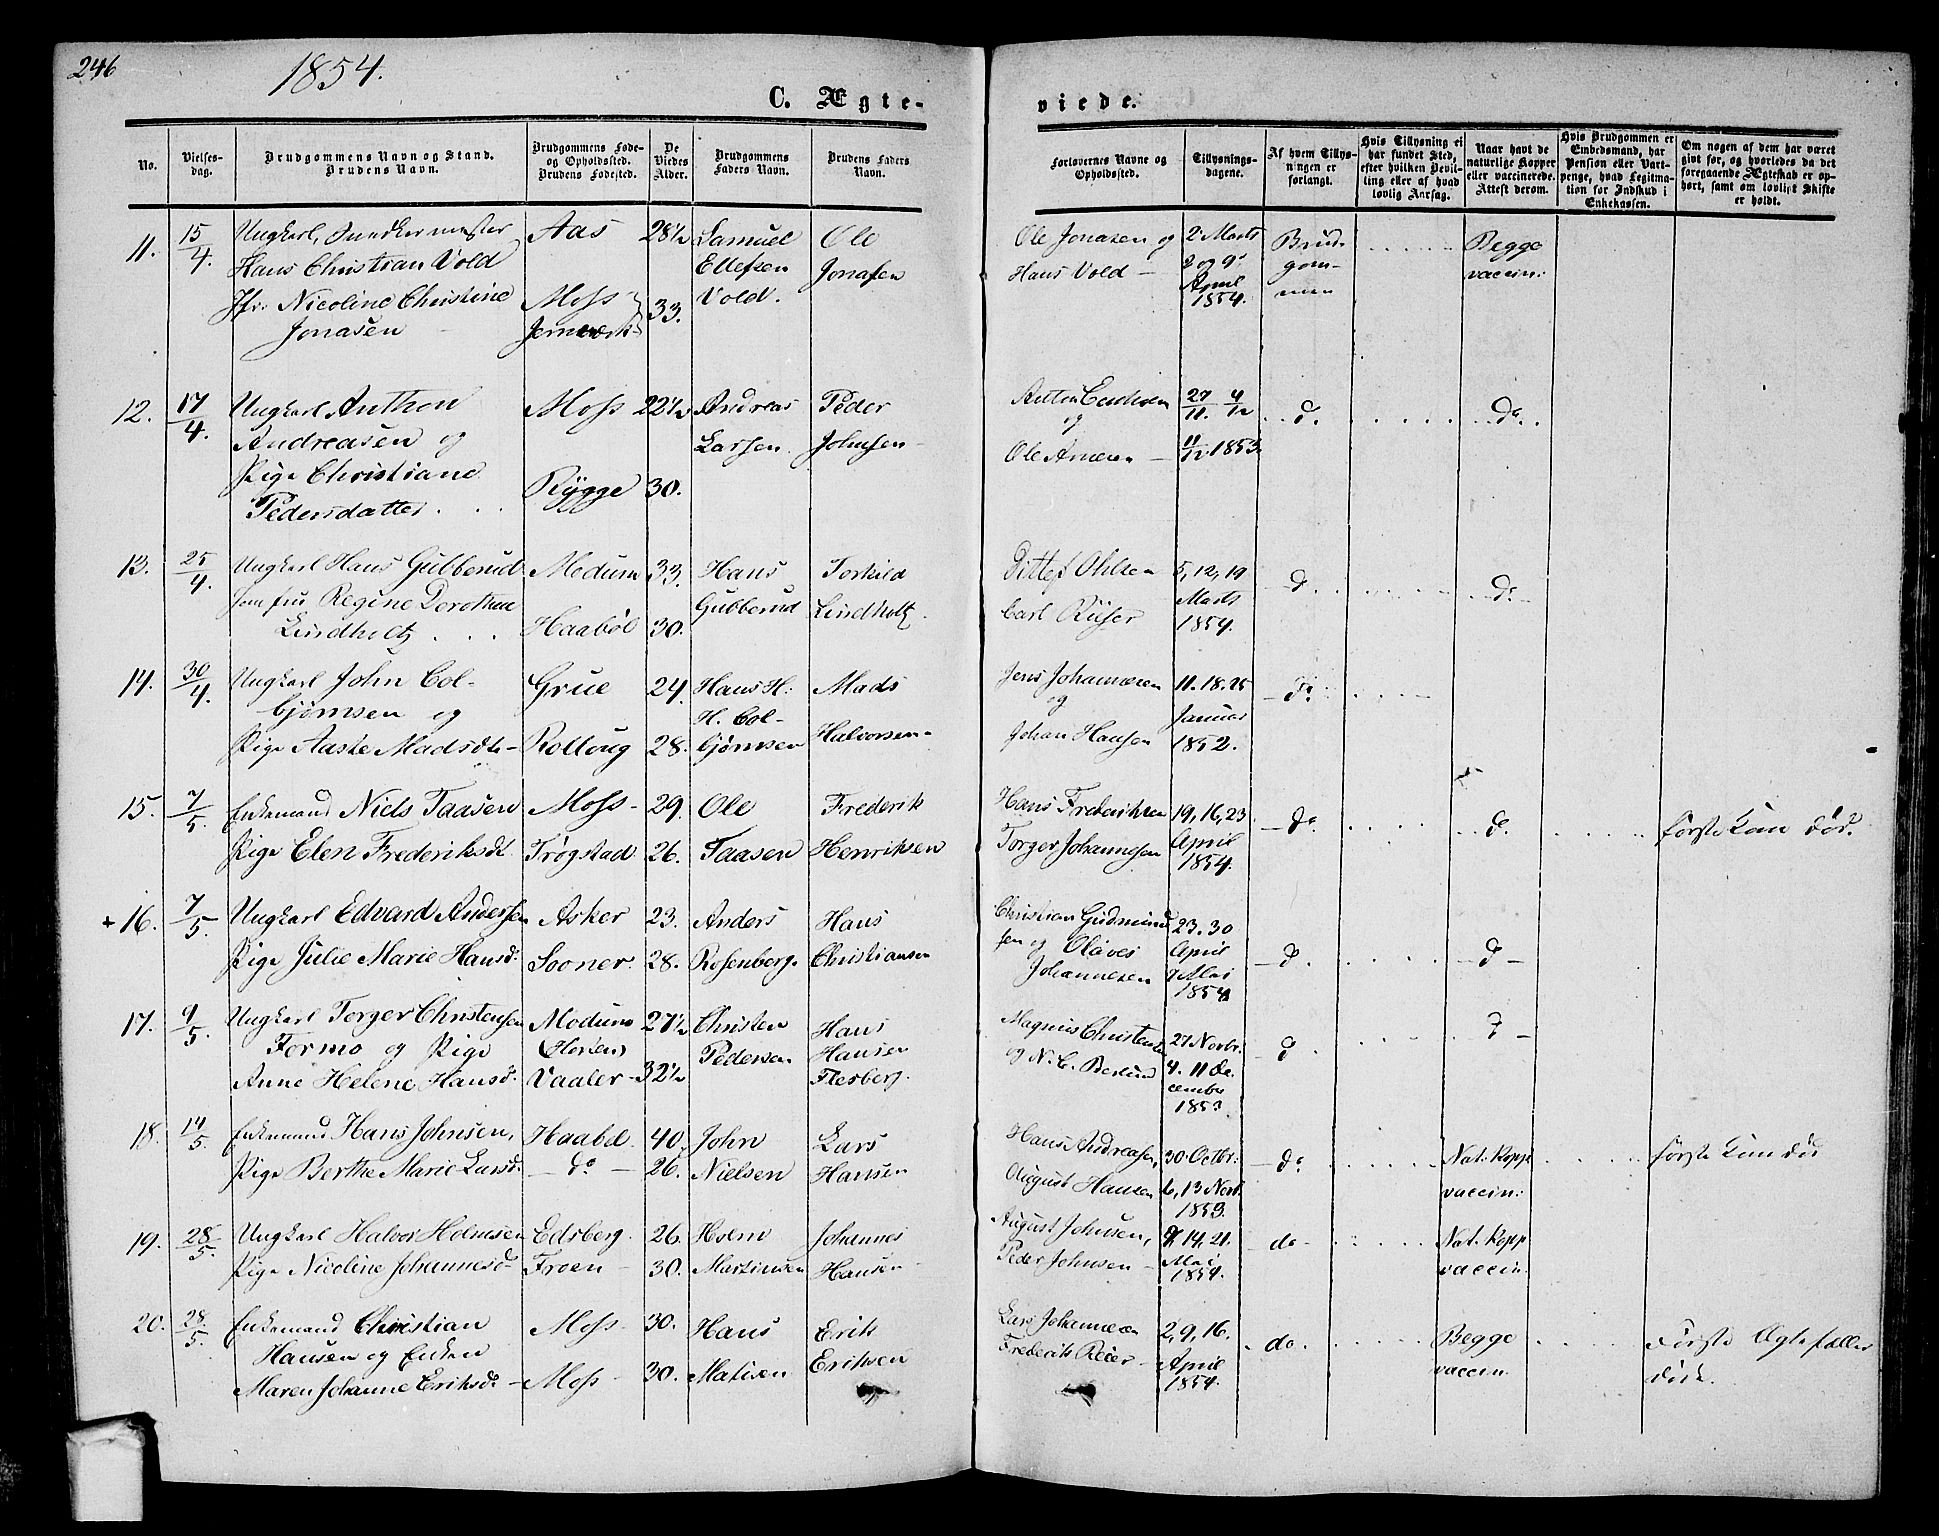 246
1854.
C. Ægte-
viede.
No.
Vielses-
dag.
Brudgommens Navn og Stand.
Brudens Navn.
Brudgommens Føde-
og Opholdssted.
Brudens Fødested.
De
Viedes
Alder.
Brudgommens
Faders Navn.
Brudens Faders
Navn.
Forlovernes Navne og
Opholdssted.
Tillysnings-
dagene.
Af hvem Tillys-
ningen er
forlangt.
Hvis Tillysning ei
har fundet Sted,
efter hvilken Bevil-
ling eller af hvad
lovlig Aarsag.
Naar havt de
naturlige Kopper
eller vaccinerede.
Attest derom.
Hvis Brudgommen er
Embedsmand, har
Pension eller Vart-
penge, hvad Legitma-
tion for Indskud i
Enkekassen.
Om nogen af dem har været
gift før, og hvorledes da det
foregaaende Ægteskab er op-
hørt, samt om lovligt Skifte
er holdt.
11. 15/4. Ungkarl, Snedkermester Aas 28½ Samuel Ole Ole Jonasen og 2 Marts Brud- Begge
Hans Christian Vold Ellefsen Jonasen Hans Vold - 2 og 9 gom- vaccin:
Jfr: Nicoline Christine Moss 33. Vold. April men
Jonasen Jernværk 1854.
12. 17/4. Ungkarl Anthon Moss 22½ Andreas Peder Anton 27/11. 4/12 d. do.
Andreasen og Larsen Johnsen og
Pige Christiane Rygge 30. Ole 11/12 1853.
Pedersdatter
13. 25/4. Ungkarl Hans Gubberud Modum 33. Hans Torkild Ditlef Ohlsen 5, 12, 19 d. do.
Jomfru Regine Dorothea Gubberud Lindholtz. Marts
Lindholtz Haabøl 30. Carl Riiser 1854.
14. 30/4. Ungkarl John Col- Grue 24. Hans H: Mads Jens Johannesen 11. 18. 25 do.
bjørnsen og H. Col- og Januar
Pige Aaste Madsdtr Rolloug 28. bjørnsen Halvorsen Johan Hansen 1852.
15. 7/5. Enkemand Niels Taasen Moss 29. Ole Frederik Hans Frederiksen 19, 16, 23 do. do. første Kone død.
Pige Elen Frederiksdt. Trøgstad 26. Taasen Henriksen Torger Johannesen April
1854.
+ 16. 7/5. Ungkarl Edvard Andersen Asker 23. Anders Hans Christian Gudmund- 23. 30
sen og Olaves April
Pige Julie Marie Hansd. Sooner. 28. Rosenberg. Christiansen Johannesen 7 Mai d. d
1854
17. 9/5. Ungkarl Torger Christensen Modum 27½ Christen Hans Magnus Christensen 27 Novbr. d. d
Formo og Pige Pedersen Hansen og N. C. Berlund 4. 11 De-
Anne Helene Hansd. Vaaler 32½ Flesberg. cember
1853.
18. 14/5. Enkemand Hans Johnsen, Haabøl. 40. John Lars Hans Andreasen, 30 Octbr: do Nat. Kopp første Kone død
Pige Berthe Marie Larsd. do 26. Nielsen Hansen August Hansen 6, 13 Novb. vaccin:
1853.
19. 28/5. Ungkarl Halvor Holmsen Edsberg. 26. Holm Johannes August Johnsen, 7, 14, 21. do Nat. Kopp
Pige Nicoline Johannesd. Froen 30. Martinsen Hansen Peder Johnsen Mai vaccin.
1854.
20. 28/5. Enkemand Christian Moss 30. Hans Erik Lars Johannesen 2, 9, 16. do. Begge Første Ægtefæller
Hansen og Enken Frederik Reier April vaccin. døde.
Maren Johanne Eriksd. Moss 30. Matisen Eriksen 1854.